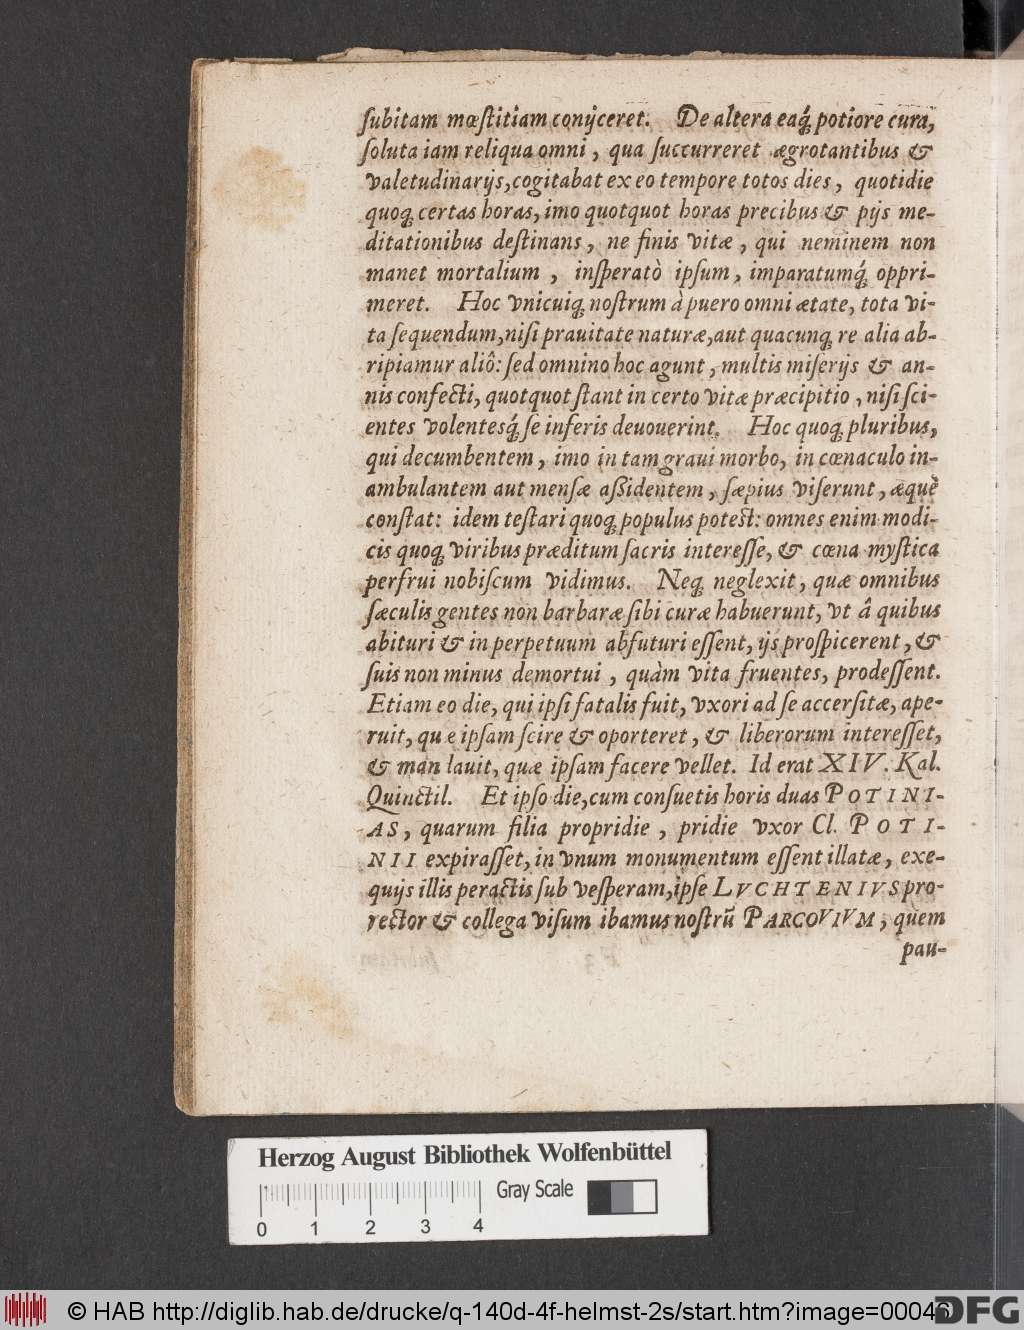 ſubitam mœſtitiam conijceret. De altera eaq́; potiore cura,
ſoluta iam reliqua omni, qua ſuccurreret ægrotantibus &
valetudinarijs, cogitabat ex eo tempore totos dies, quotidie
quoq; certas horas, imo quotquot horas precibus & pijs me-
ditationibus deſtinans, ne finis vitæ, qui neminem non
manet mortalium, inſperatò ipſum, imparatumq́; oppri-
meret. Hoc vnicuiq; noſtrum à puero omni ætate, tota vi-
ta ſequendum, niſi prauitate naturæ, aut quacunq; re alia ab-
ripiamur aliò: ſed omnino hoc agunt, multis miſerijs & an-
nis confecti, quotquot ſtant in certo vitæ præcipitio, niſi ſci-
entes volentesq́; ſe inferis deuouerint. Hoc quoq; pluribus,
qui decumbentem, imo in tam graui morbo, in cœnaculo in-
ambulantem aut menſæ aßidentem, ſæpius viſerunt, æquè
conſtat: idem teſtari quoq; populus poteſt: omnes enim modi-
cis quoq; viribus præditum ſacris intereſſe, & cœna myſtica
perfrui nobiſcum vidimus. Neq; neglexit, quæ omnibus
ſæculis gentes non barbaræ ſibi curæ habuerunt, vt â quibus
abituri & in perpetuum abfuturi eſſent, ijs proſpicerent, &
ſuis non minus demortui, quàm vita fruentes, prodeſſent.
Etiam eo die, qui ipſi fatalis fuit, vxori ad ſe accerſitæ, ape-
ruit, quæ ipſam ſcire & oporteret, & liberorum intereſſet,
& man lauit, quæ ipſam facere vellet. Id erat XIV. Kal.
Quinctil. Et ipſo die, cum conſuetis horis duas POTINI-
AS, quarum filia propridie, pridie vxor Cl. POTI-
NII expiraſſet, in vnum monumentum eſſent illatæ, exe-
quijs illis peractis ſub veſperam, ipſe LVCHTENIVS pro-
rector & collega viſum ibamus noſtrũ PARCOVIVM, quem
pau-
Herzog August Bibliothek Wolfenbüttel
Gray Scale
0 1 2 3 4
© HAB http://diglib.hab.de/drucke/q-140d-4f-helmst-2s/start.htm?image=00046
DFG